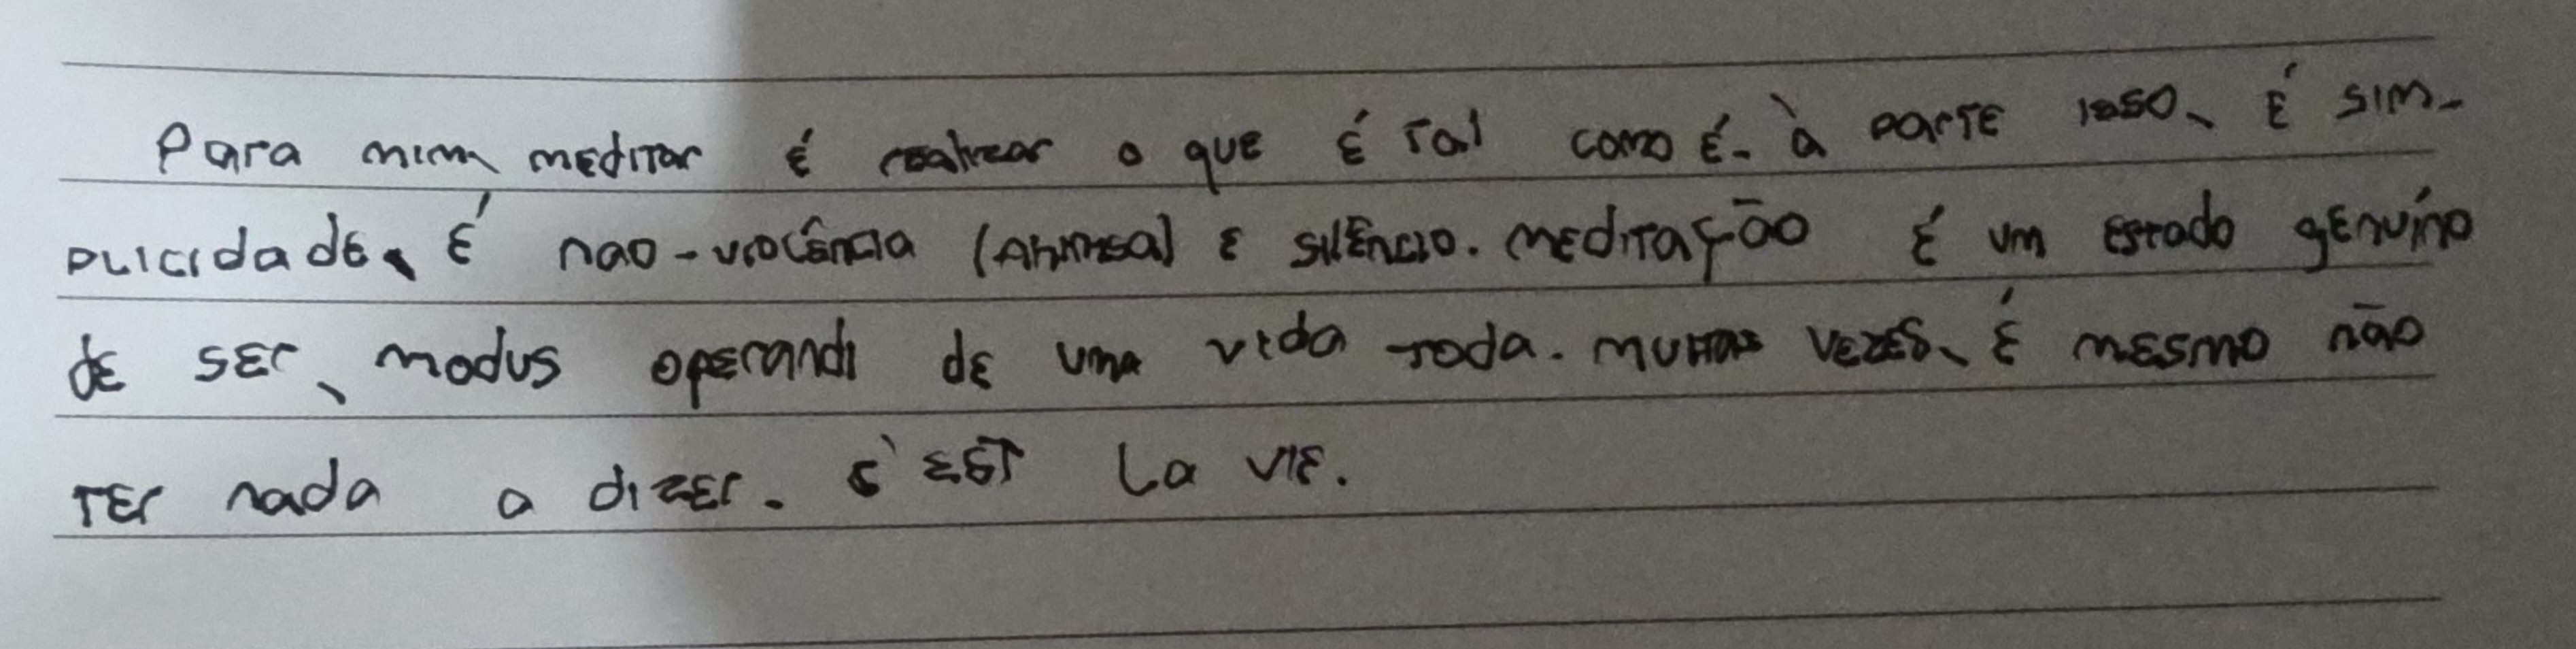 Para mim, meditar é realizar o que é tal como é. à parte isso, é sim-
plicidade, é nao-violência (Ahimsa) e silêncio. Meditação é um estado genuíno
de ser, modus operandi de uma vida toda. Muitas vezes, é mesmo não
ter nada a dizer. C'est la vie.